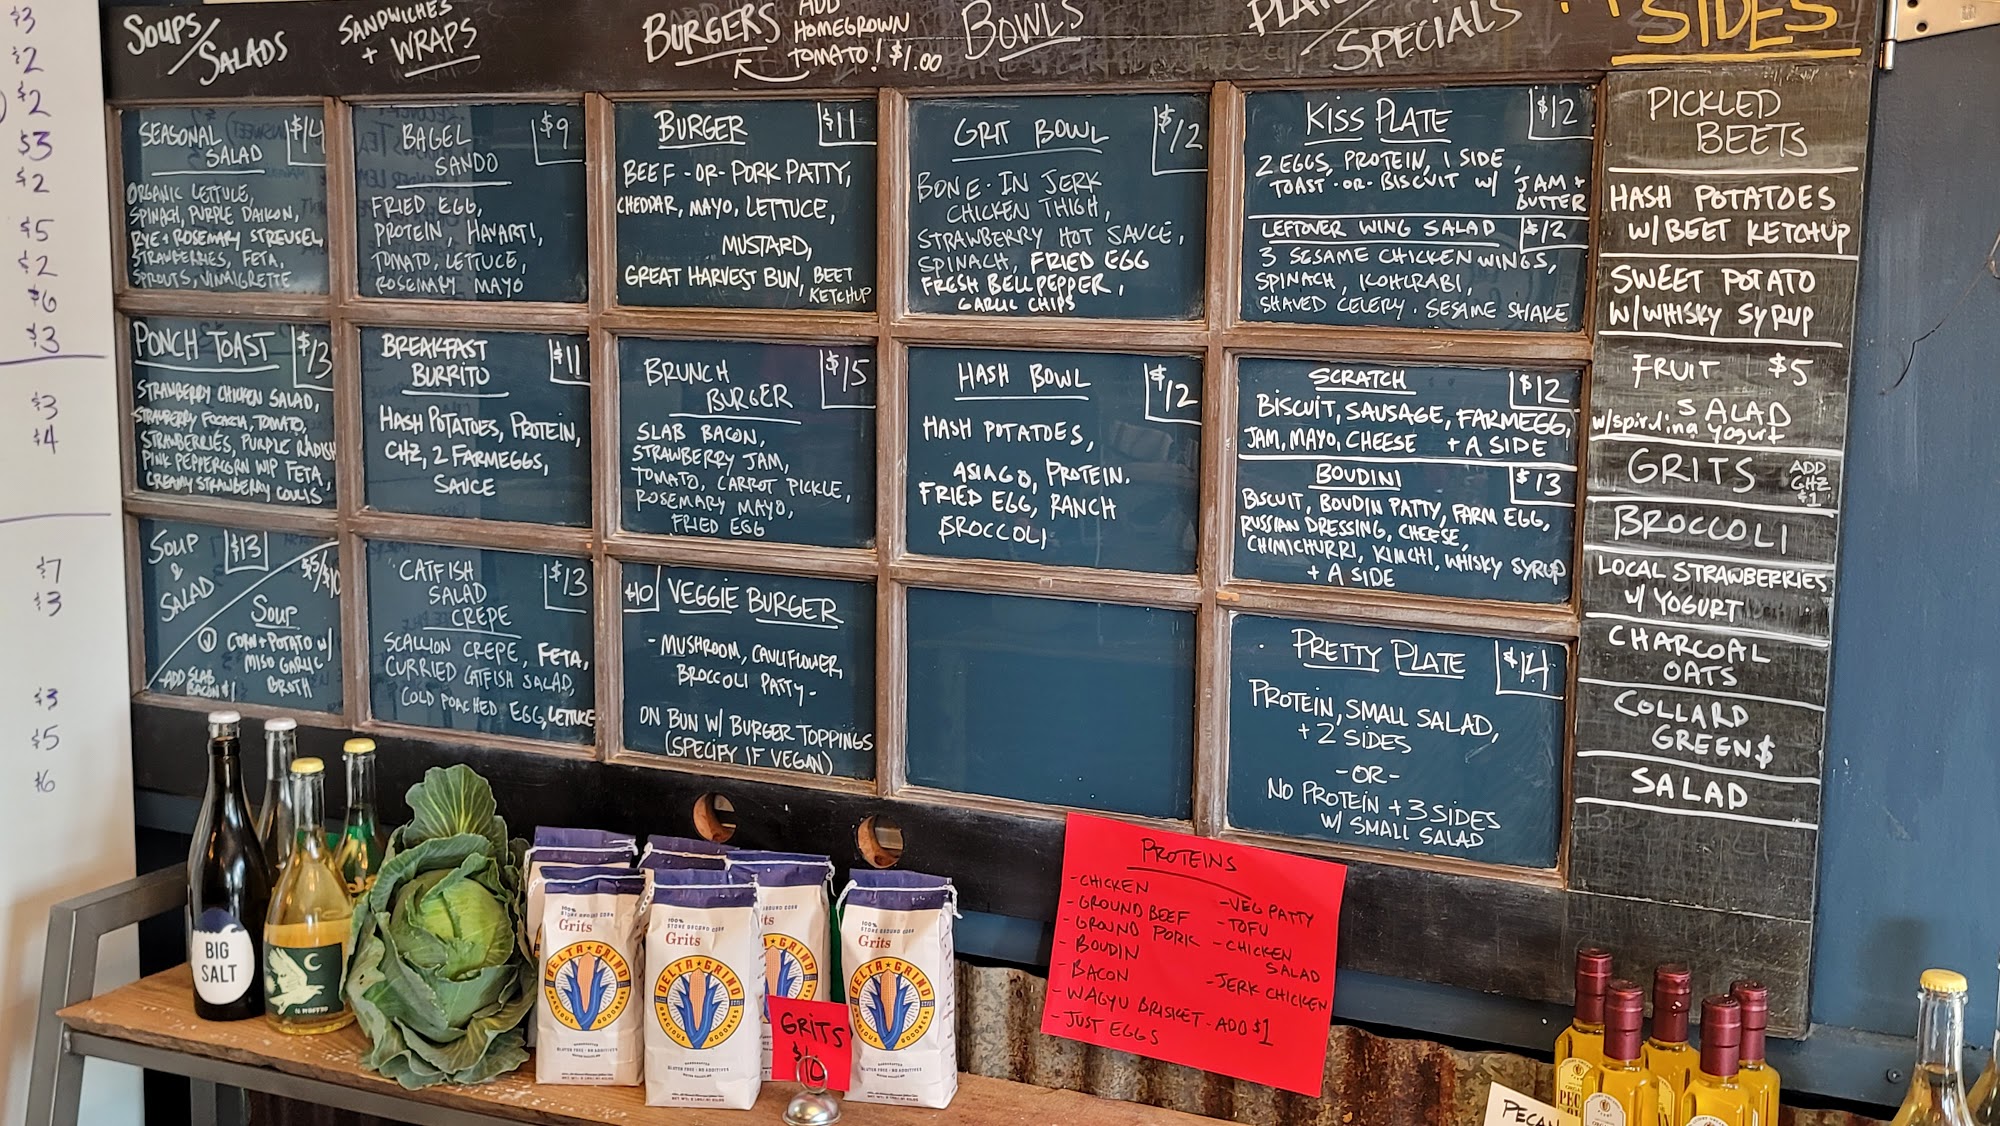 $3
$2
$2
$3
$2
$5
$2
$6
$3
$3
$4
$7
$3
$3
$5
$6
SOUPS/
SALADS
SEASONAL
SALAD
$14
ORGANIC LETTUCE,
SPINACH, PURPLE DAIKON,
RYE + ROSEMARY STREUSEL,
STRAWBERRIES, FETA,
SPROUTS, VINAIGRETTE
PONCH TOAST
$13
STRAWBERRY CHICKEN SALAD,
STRAWBERRY FOCACH, TOMATO,
STRAWBERRIES, PURPLE RADISH
PINK PEPPERCORN WIP FETA,
CREAMY STRAWBERRY COULIS
SOUP
&
SALAD
$13
$5/$10
SOUP
V CORN + POTATO W/
MISO GARLIC
BROTH
-ADD SLAB
BACON $1
SANDWICHES
+ WRAPS
BAGEL
SANDO
$9
FRIED EGG,
PROTEIN, HAVARTI,
TOMATO, LETTUCE,
ROSEMARY MAYO
BREAKFAST
BURRITO
$11
HASH POTATOES, PROTEIN,
CHZ, 2 FARMEGGS,
SAUCE
CATFISH
SALAD
CREPE
$13
SCALLION CREPE, FETA,
CURRIED CATFISH SALAD,
COLD POACHED EGG, LETTUCE
BURGERS
ADD
HOMEGROWN
TOMATO! $1.00
BURGER
$11
BEEF -OR- PORK PATTY,
CHEDDAR, MAYO, LETTUCE,
MUSTARD,
GREAT HARVEST BUN, BEET
KETCHUP
BRUNCH
BURGER
$15
SLAB BACON,
STRAWBERRY JAM,
TOMATO, CARROT PICKLE,
ROSEMARY MAYO,
FRIED EGG
$10
VEGGIE BURGER
- MUSHROOM, CAULIFLOWER,
BROCCOLI PATTY -
ON BUN W/ BURGER TOPPINGS
(SPECIFY IF VEGAN)
BOWLS
GRIT BOWL
$12
BONE-IN JERK
CHICKEN THIGH,
STRAWBERRY HOT SAUCE,
SPINACH, FRIED EGG
FRESH BELL PEPPER,
GARLIC CHIPS
HASH BOWL
$12
HASH POTATOES,
ASIAGO, PROTEIN.
FRIED EGG, RANCH
BROCCOLI
SPECIALS
KISS PLATE
$12
2 EGGS, PROTEIN, 1 SIDE,
TOAST -OR- BISCUIT W/ JAM +
BUTTER
LEFTOVER WING SALAD
$12
3 SESAME CHICKEN WINGS,
SPINACH, KOHLRABI,
SHAVED CELERY. SESAME SHAKE
SCRATCH
$12
BISCUIT, SAUSAGE, FARMEGG,
JAM, MAYO, CHEESE + A SIDE
BOUDINI
$13
BISCUIT, BOUDIN PATTY, FARM EGG,
RUSSIAN DRESSING, CHEESE,
CHIMICHURRI, KIMCHI, WHISKY SYRUP
+ A SIDE
PRETTY PLATE
$14
PROTEIN, SMALL SALAD,
+ 2 SIDES
-OR-
NO PROTEIN + 3 SIDES
W/ SMALL SALAD
SIDES
PICKLED
BEETS
HASH POTATOES
W/ BEET KETCHUP
SWEET POTATO
W/ WHISKY SYRUP
FRUIT $5
SALAD
w/ spirulina yogurt
GRITS
ADD
CHZ
$1
BROCCOLI
LOCAL STRAWBERRIES
W/ YOGURT
CHARCOAL
OATS
COLLARD
GREEN$
SALAD
PROTEINS
- CHICKEN
- GROUND BEEF
- GROUND PORK
- BOUDIN
- BACON
- WAGYU BRISKET - ADD $1
- JUST EGGS
- VEG PATTY
- TOFU
- CHICKEN
SALAD
- JERK CHICKEN
BIG
SALT
100%
STONE GROUND CORN
Grits
DELTA GRIND
GRACIOUS GOODNESS
GLUTEN FREE • NO ADDITIVES
100%
STONE GROUND CORN
Grits
DELTA GRIND
GRACIOUS GOODNESS
GLUTEN FREE • NO ADDITIVES
100%
STONE GROUND CORN
Grits
DELTA GRIND
GRACIOUS GOODNESS
GLUTEN FREE • NO ADDITIVES
GRITS
$10
PECAN